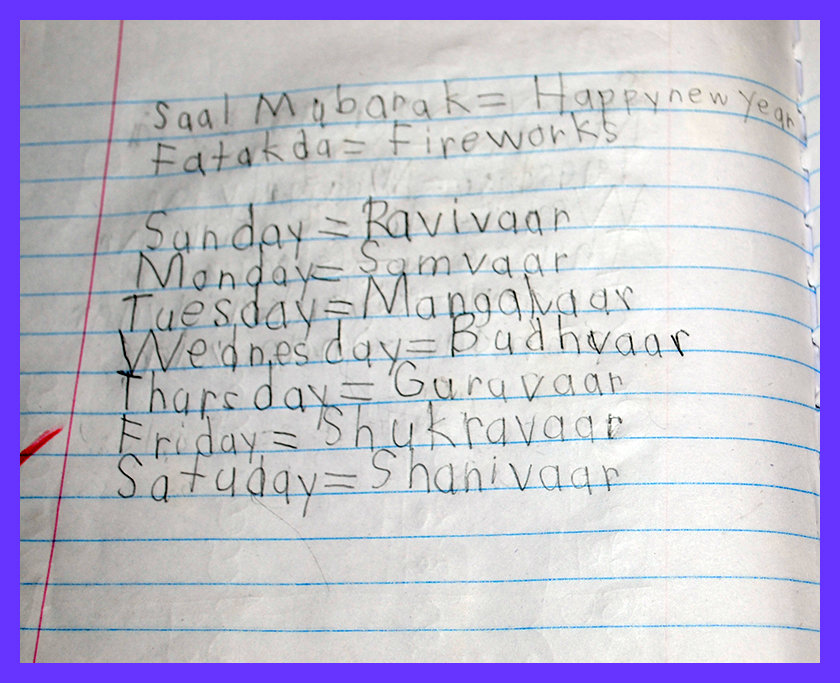 Saal Mubarak = Happy new year
Fatakda = Fireworks
Sunday = Ravivaar
Monday = Somvaar
Tuesday = Mangalvaar
Wednesday = Budhvaar
Thursday = Guruvaar
Friday = Shukravaar
Satuday = Shanivaar